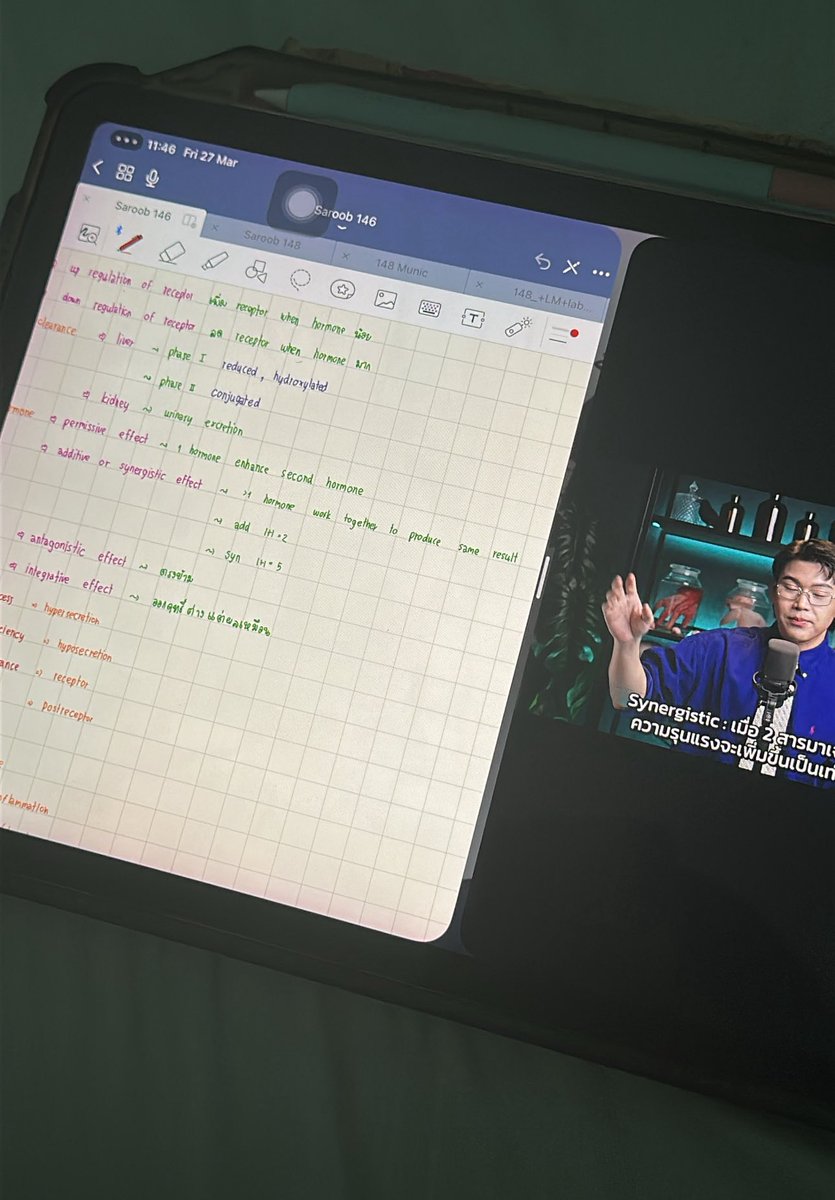 11:46 Fri 27 Mar
Saroob 146
Saroob 146
Saroob 148
148 Munic
148_+LM+lab...
up regulation of receptor เพิ่ม receptor when hormone น้อย
down regulation of receptor ลด receptor when hormone มาก
clearance liver ~ phase I reduced, hydroxylated
~ phase II conjugated
kidney ~ urinary excretion
permissive effect ~ 1 hormone enhance second hormone
additive or synergistic effect ~ >1 hormone work together to produce same result
~ add 1+1=2
~ syn 1+1=5
antagonistic effect ~ ตรงข้าม
integrative effect ~ ออกฤทธิ์ต่างแต่ผลเหมือน
hypersecretion
hyposecretion
receptor
postreceptor
Synergistic : เมื่อ 2 สารมาเจ
ความรุนแรงจะเพิ่มขึ้นเป็นเท่